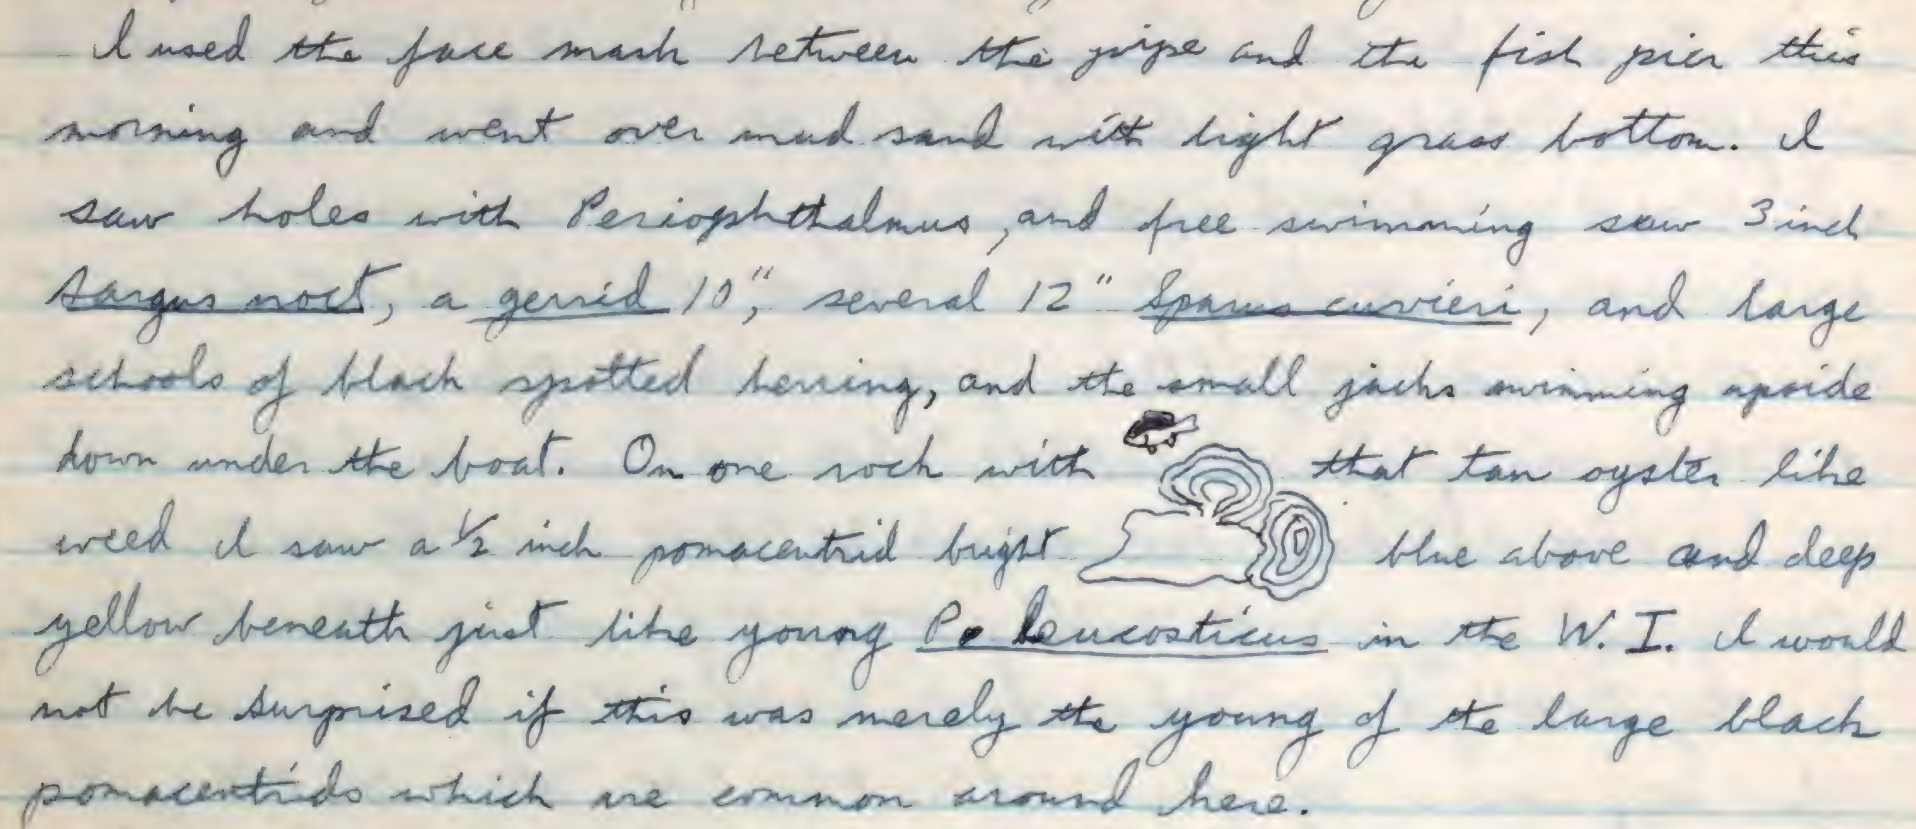 I used the face mask between the pipe and the fish pier this
morning and went over mud sand with light grass bottom. I
saw holes with Periophthalmus, and free swimming saw 3 inch
Sargus noct, a gerrid 10", several 12" Sparus curvieri, and large
schools of black spotted herring, and the small jacks swimming upside
down under the boat. On one rock with that tan oyster like
weed I saw a ½ inch pomacentrid bright blue above and deep
yellow beneath just like young P. leucosticus in the W. I. I would
not be surprised if this was merely the young of the large black
pomacentrids which are common around here.